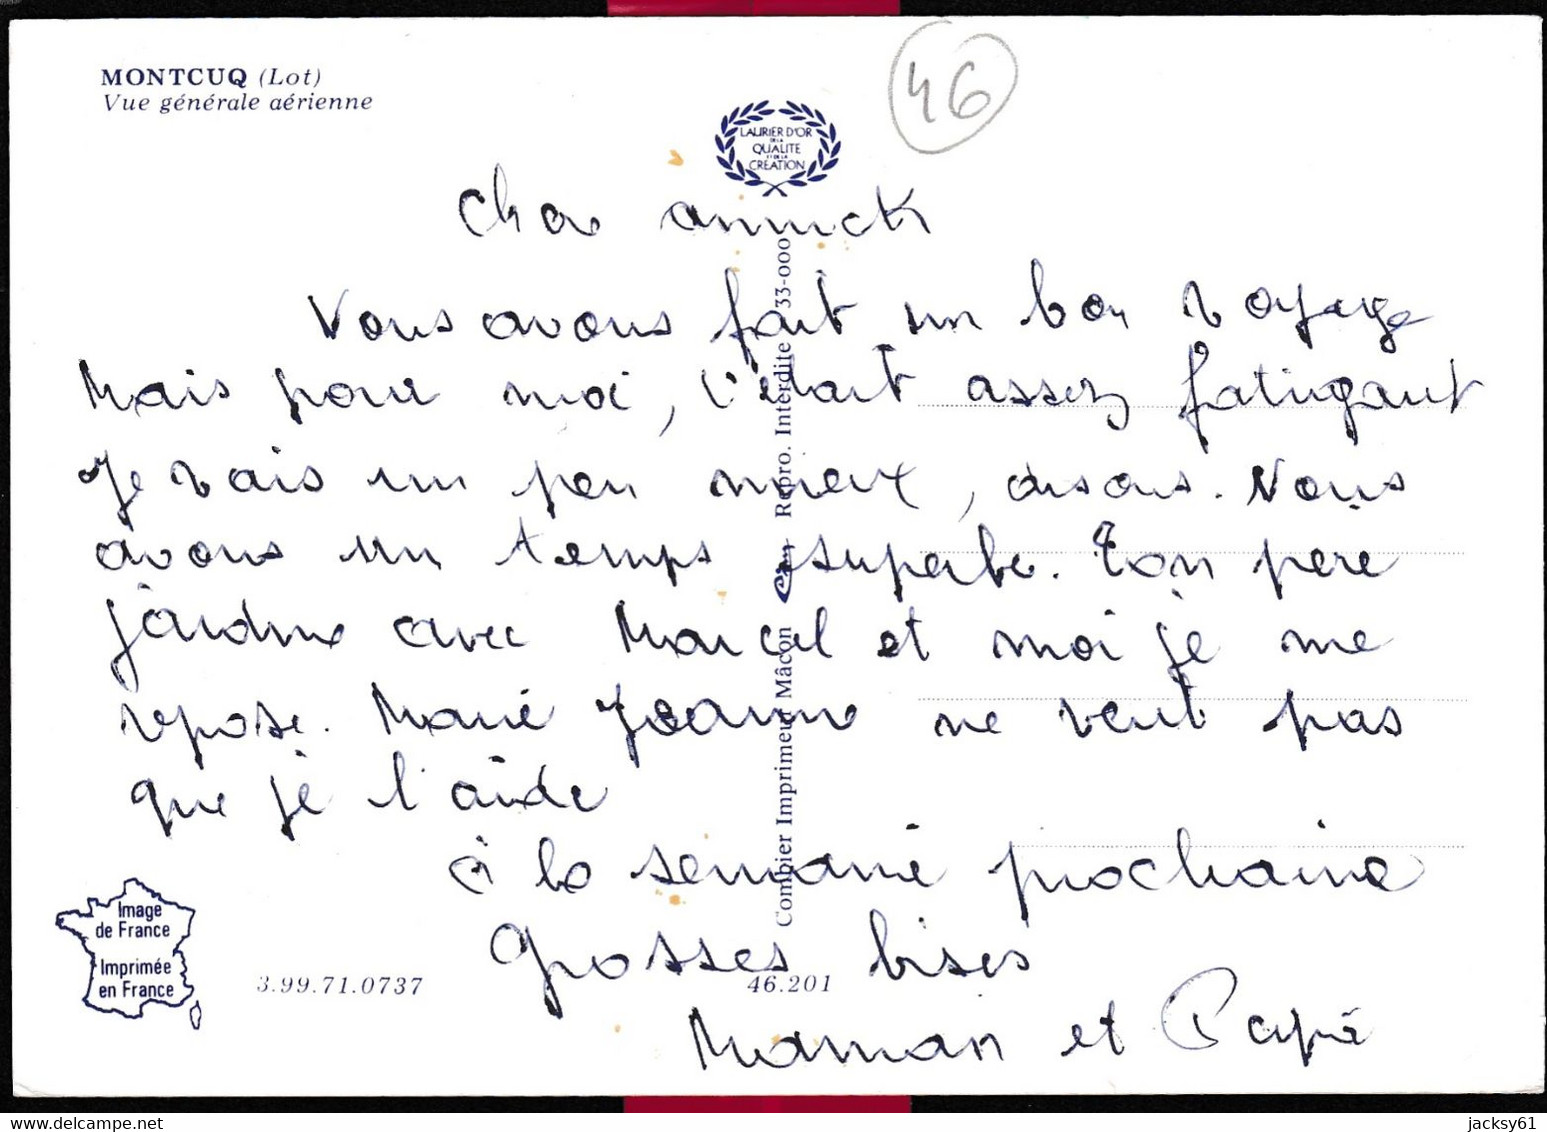 MONTCUQ (Lot)
Vue générale aérienne
46
LAURIER D'OR
DE LA
QUALITE
ET DE LA
CREATION
Chère annick
Nous avons fait un bon voyage
Mais pour moi, c'était assez fatigant
Je vais un peu mieux, disons. Nous
avons un temps superbe. Ton père
jardine avec Marcel et moi je me
repose. Marie Jeanne ne veut pas
que je l'aide
à la semaine prochaine
Grosses bises
Maman et Papa
Combier Imprimeur Mâcon Cim Repro. Interdite 33-000
Image
de France
Imprimée
en France
3.99.71.0737
46.201
jacksy61
delcampe.net